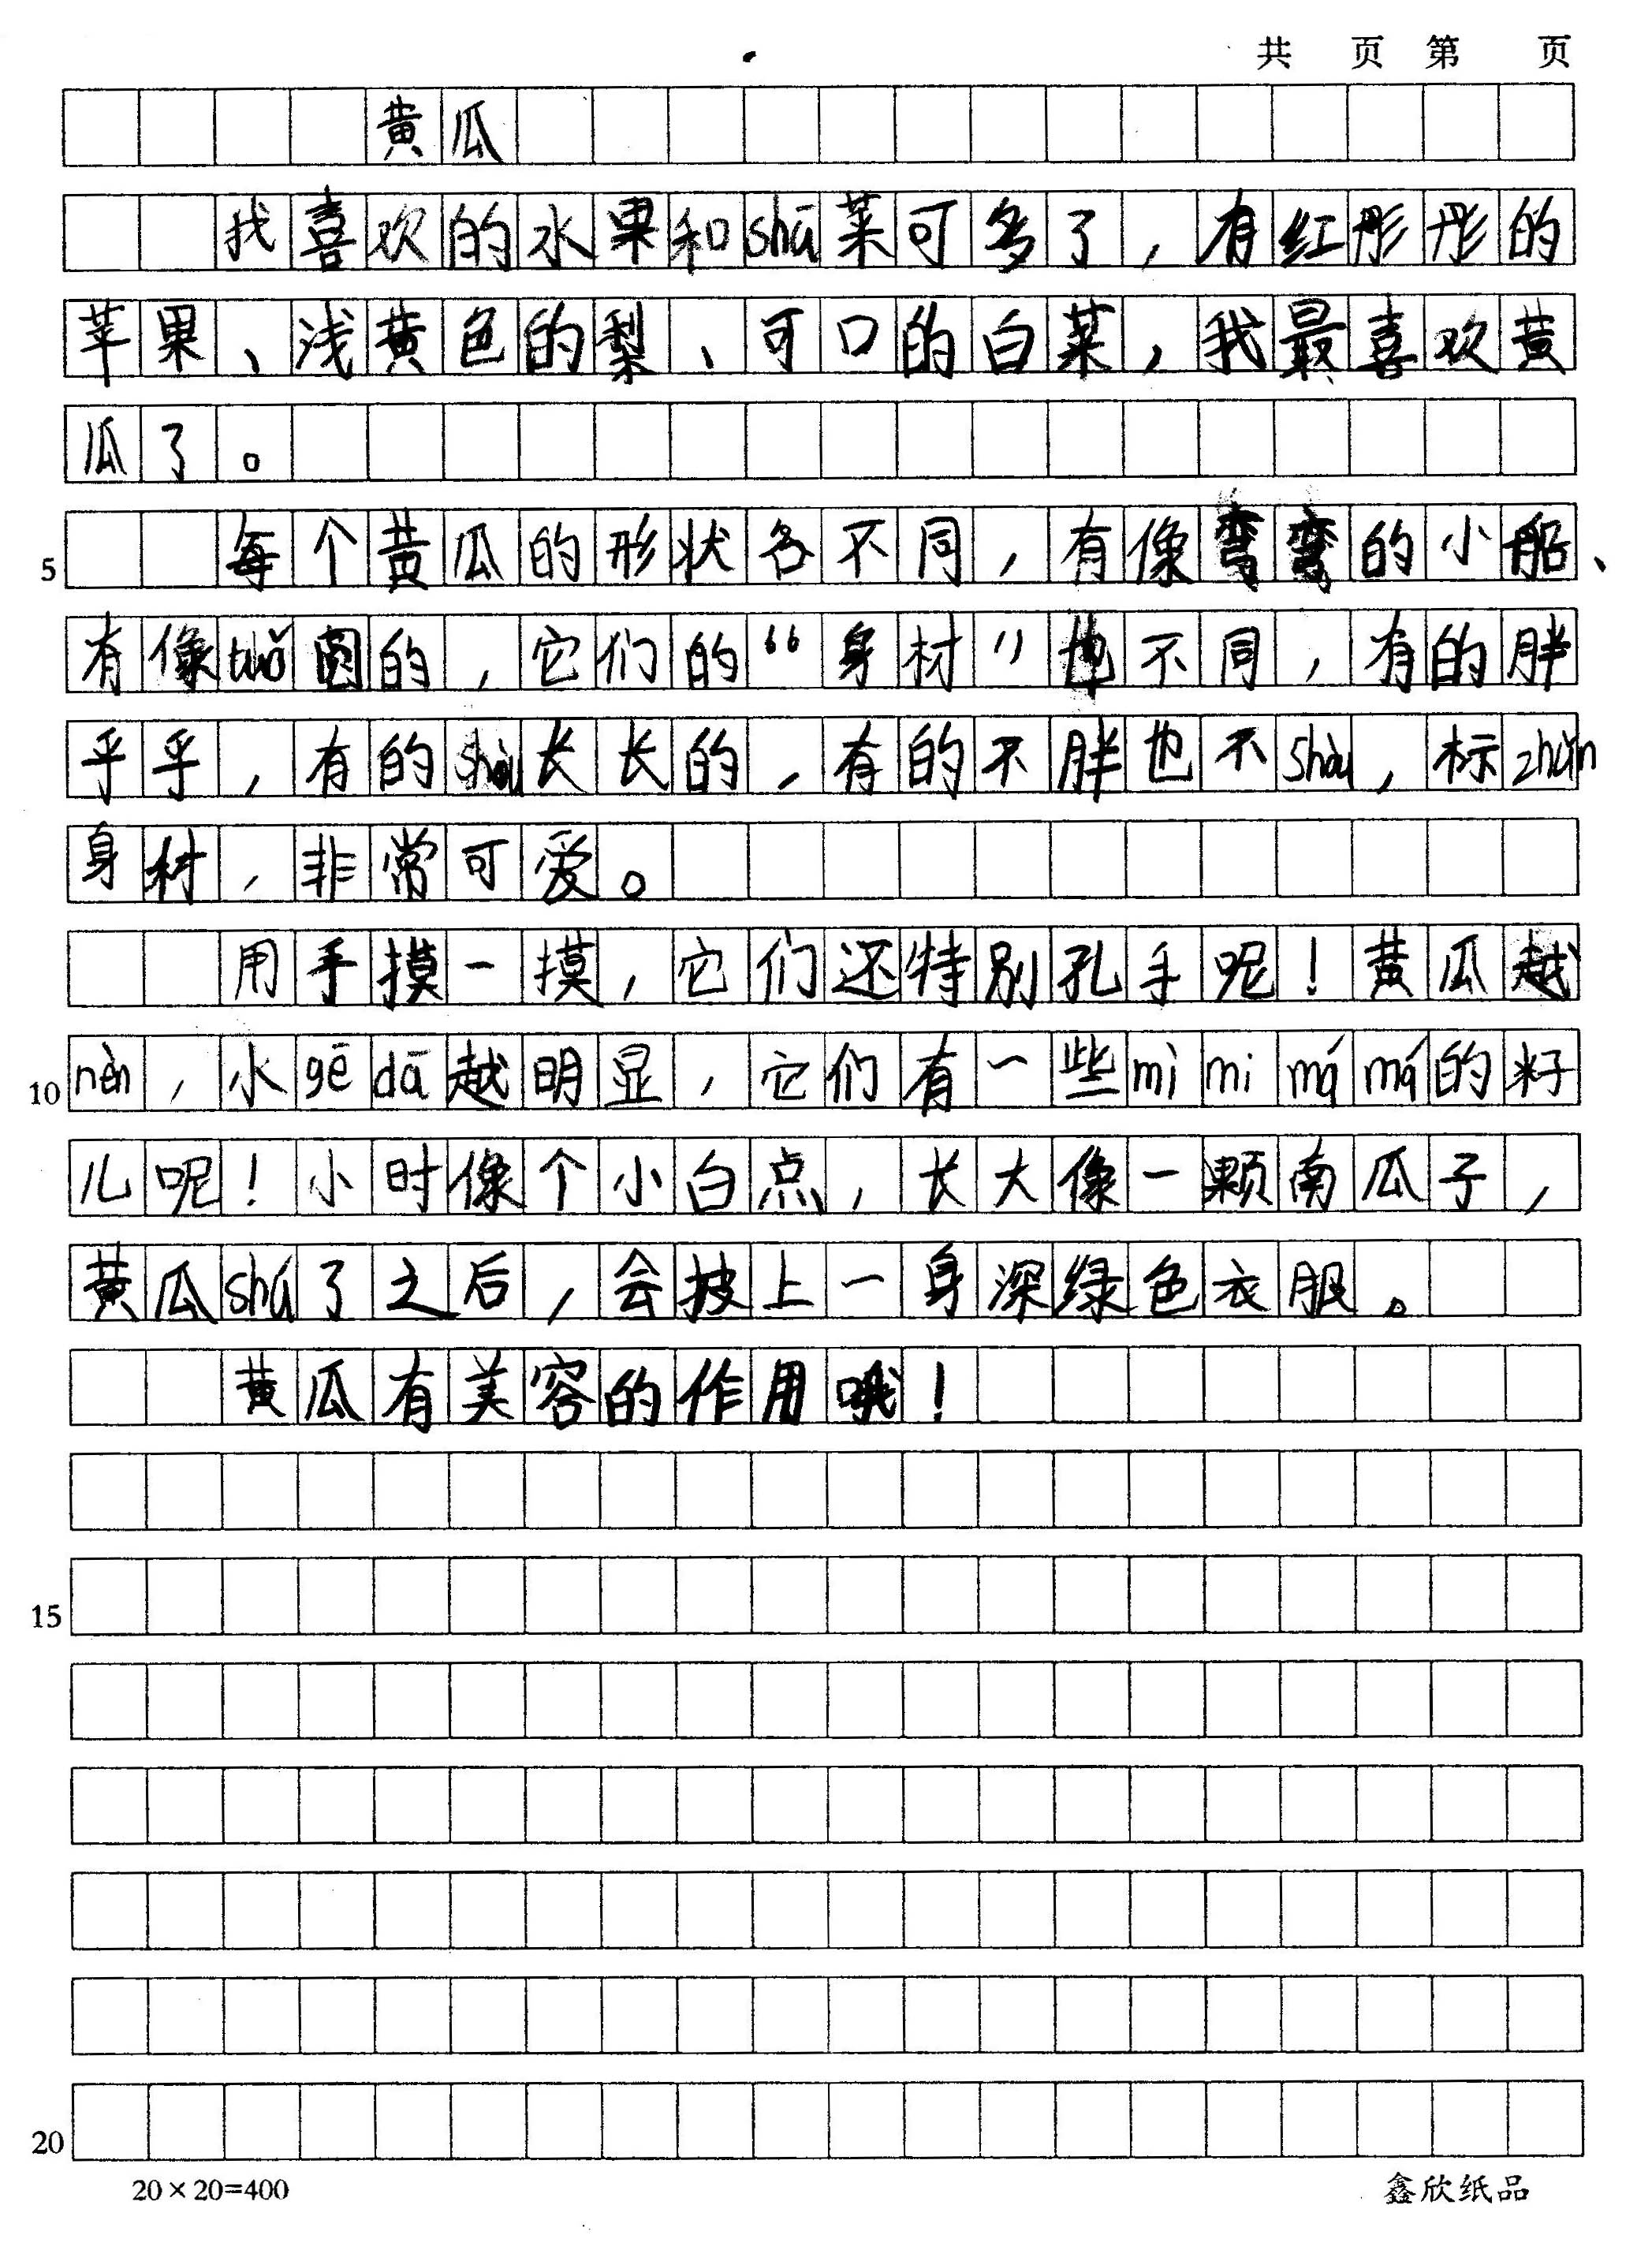 共 页 第 页
黄瓜
找喜欢的水果和shū菜可多了，有红彤彤的
苹果、浅黄色的梨、可口的白菜，我最喜欢黄
瓜了。
5 每个黄瓜的形状各不同，有像弯弯的小船、
有像tuǒ圆的，它们的“身材”也不同，有的胖
乎乎，有的shòu长长的，有的不胖也不shòu，标zhǔn
身材，非常可爱。
用手摸一摸，它们还特别孔手呢！黄瓜越
10 nèn，小gē dā越明显，它们有一些mì mi má má的籽
儿呢！小时像个小白点，长大像一颗南瓜子，
黄瓜shú了之后，会披上一身深绿色衣服。
黄瓜有美容的作用哦！
15
20
20×20=400 鑫欣纸品